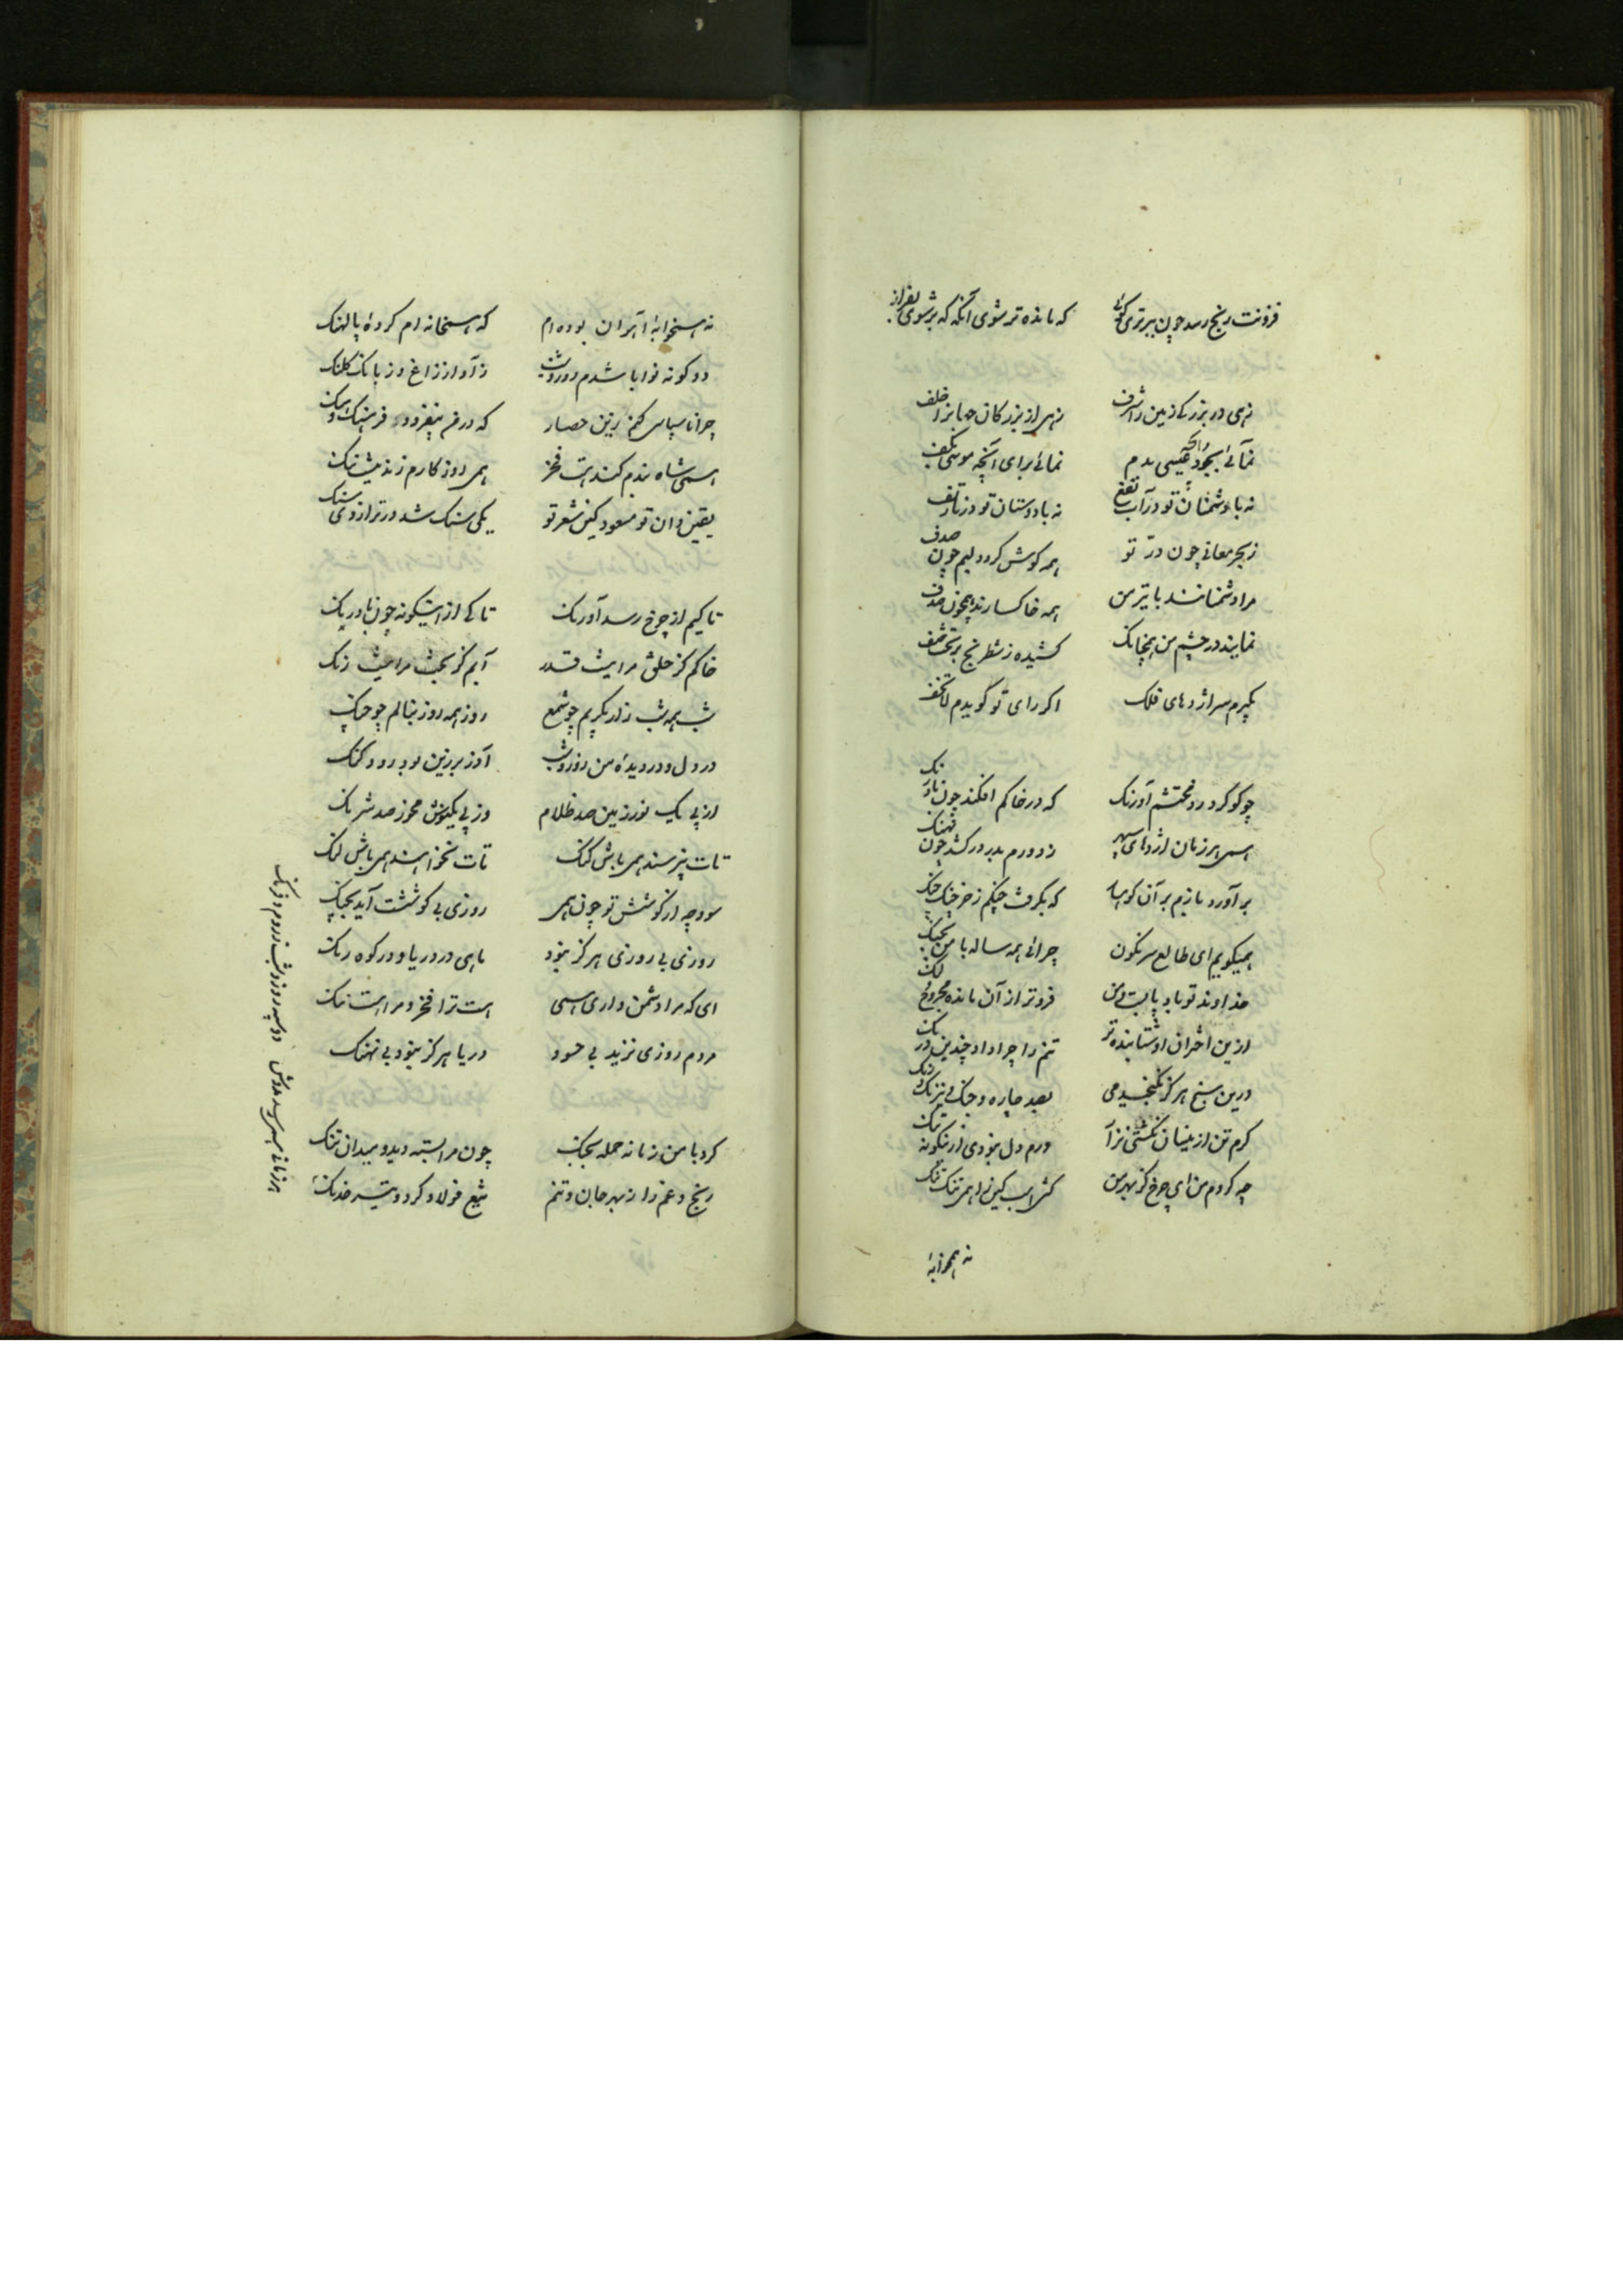 فزونت رنج رسد چون ببرتری کوشی که مانده تر شوی آنگه که برشوی بفراز
زهی در بزرگی زمین را شرف زهر از بزرکان جهانرا خلف
نمائی بجود آنچه عیسی بدم نمائی برای آنچه موسی بکف
نه با دشمنان تو در آب تف نه با دوستان تو در نار تف
زبحر معانی چون در تو همه گوش کردد لیم چون صدف
مرا دشمنانند با تیر من همه خاکسارند همچون هدف
نمایند در چشم من همچنانک کشیده ز شطرنج بر تخته صف
بگیرم سر اژدهای فلک اکر رای تو گویدم لا تخف
چو کوکرد زد محنتم آذرنک که در خاکم افکند چون بادرنک
همی هر زمان اژدهای سپهر ز دورم بدم درکشد چون نهنک
برآورد بازیم بر آن کوهسار که بکرفت چنکم ز خرچنک چنک
همیکویم ای طالع سرنکون چرائی همه ساله با من بجنک
خداوند تو باد پایست من فروتر از آن مانده مجروح لنک
ازین اختران او شتابنده تر تنم را چرا داد چندین درنک
درین سنج هرگز نکنجیدمی بصد چاره و جنک و نیرنک و رنک
گرم تن ازینسان نکشتی نزار ورم دل نبودی ازینگونه تنک
چه کردم من ای چرخ کز بهر من کشی اسب کین را همی تنک تنک
نه همخوابهٔ
نه همخوابهٔ آهوان بوده ام که همخانه ام کردهٔ با پلنک
دو کونه نوا باشدم روز و شب ز آواز زاغ و ز بانک کلنک
چرا ناسپاسی کنم زین حصار که در من بیفزود فرهنک و هنک
همی شاه بندم کند هست فخر همی روزگارم زند نیست ننک
یقین دان تو مسعود کین شعر تو یکی سنک شد در ترازوی سنک
تا کیم از چرخ رسد آذرنک تا کی ازین گونه چون بادرنک
خاکم کز خلق مرا نیست قدر آبم کز بخت مرا نیست رنک
شب همه شب زار بگریم چو شمع روز همه روز بنالم چو چنک
در دل و در دیدهٔ من روز و شب آذر برزین بود و رود کنک
از پی یک نور مبین صد ظلام وز پی یک نوش مخور صد شرنک
تات نپرسند همی باش کنک تات نخوانند همی باش لنک
سود چه از کوشش تو چون همی روزی بی کوششت آید بچنک
روزی بی روزی هرگز نبود ماهی در دریا و در کوه رنک
ای که مرا دشمن داری همی هست ترا فخر و مرا هست ننک
مردم روزی نزید بی حسود دریا هرگز نبود بی نهنک
کرد با من زمانه حمله بجنک چون مرا بسته دید و میدان تنک
رنج و غم را ز بهر جان و تنم تیغ فولاد کرد و تیر خدنک
هر زمانی همی رسد مددش دو سپه روز و شب ز روم و ز زنک